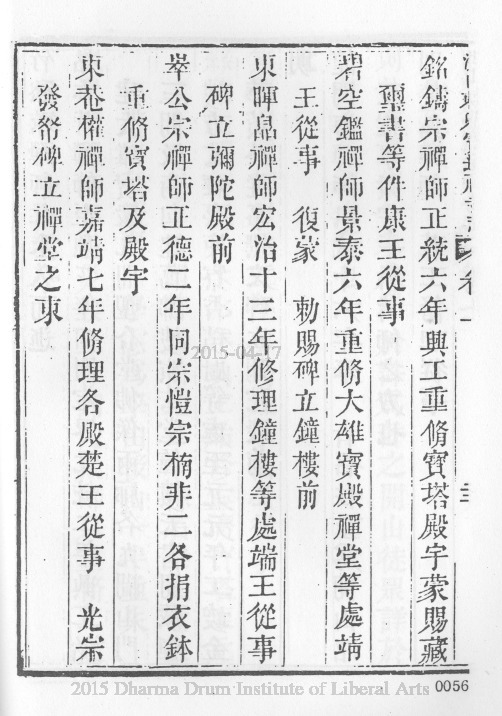 銘鑄宗禪師正統六年興工重脩寶塔殿宇蒙賜藏
璽書等件康王從事
碧空鑑禪師景泰六年重脩大雄寶殿禪堂等處靖
王從事 復蒙 勑賜碑立鐘樓前
東暉晶禪師宏治十三年修理鐘樓等處端王從事
碑立彌陀殿前
翠公宗禪師正德二年同宗愷宗楠非一各捐衣鉢
重脩寶塔及殿宇
東菴權禪師嘉靖七年脩理各殿楚王從事 光宗
發帑碑立禪堂之東
2015-04-17
2015 Dharma Drum Institute of Liberal Arts 0056